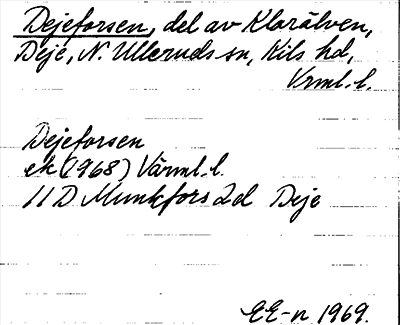 Dejeforsen, del av Klarälven,
Deje, N. Ulleruds sn, Kils hd,
Vrml. l.
Dejeforsen
ek (1968) Värml. l.
11 D Munkfors 2d Deje
EE-n 1969.